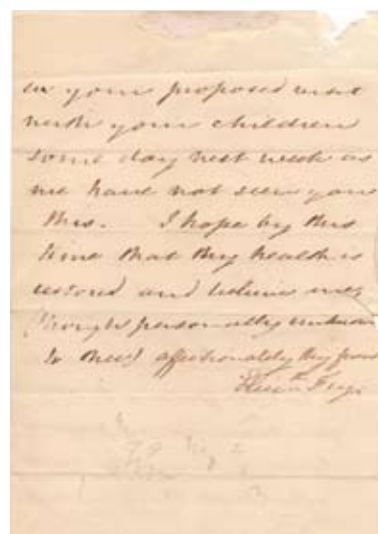 in your proposed visit
with your children
some day next week as
we have not seen you
this. I hope by this
time that thy health is
restored and believe me
(though personally unknown
to thee) affectionately thy friend
Fry